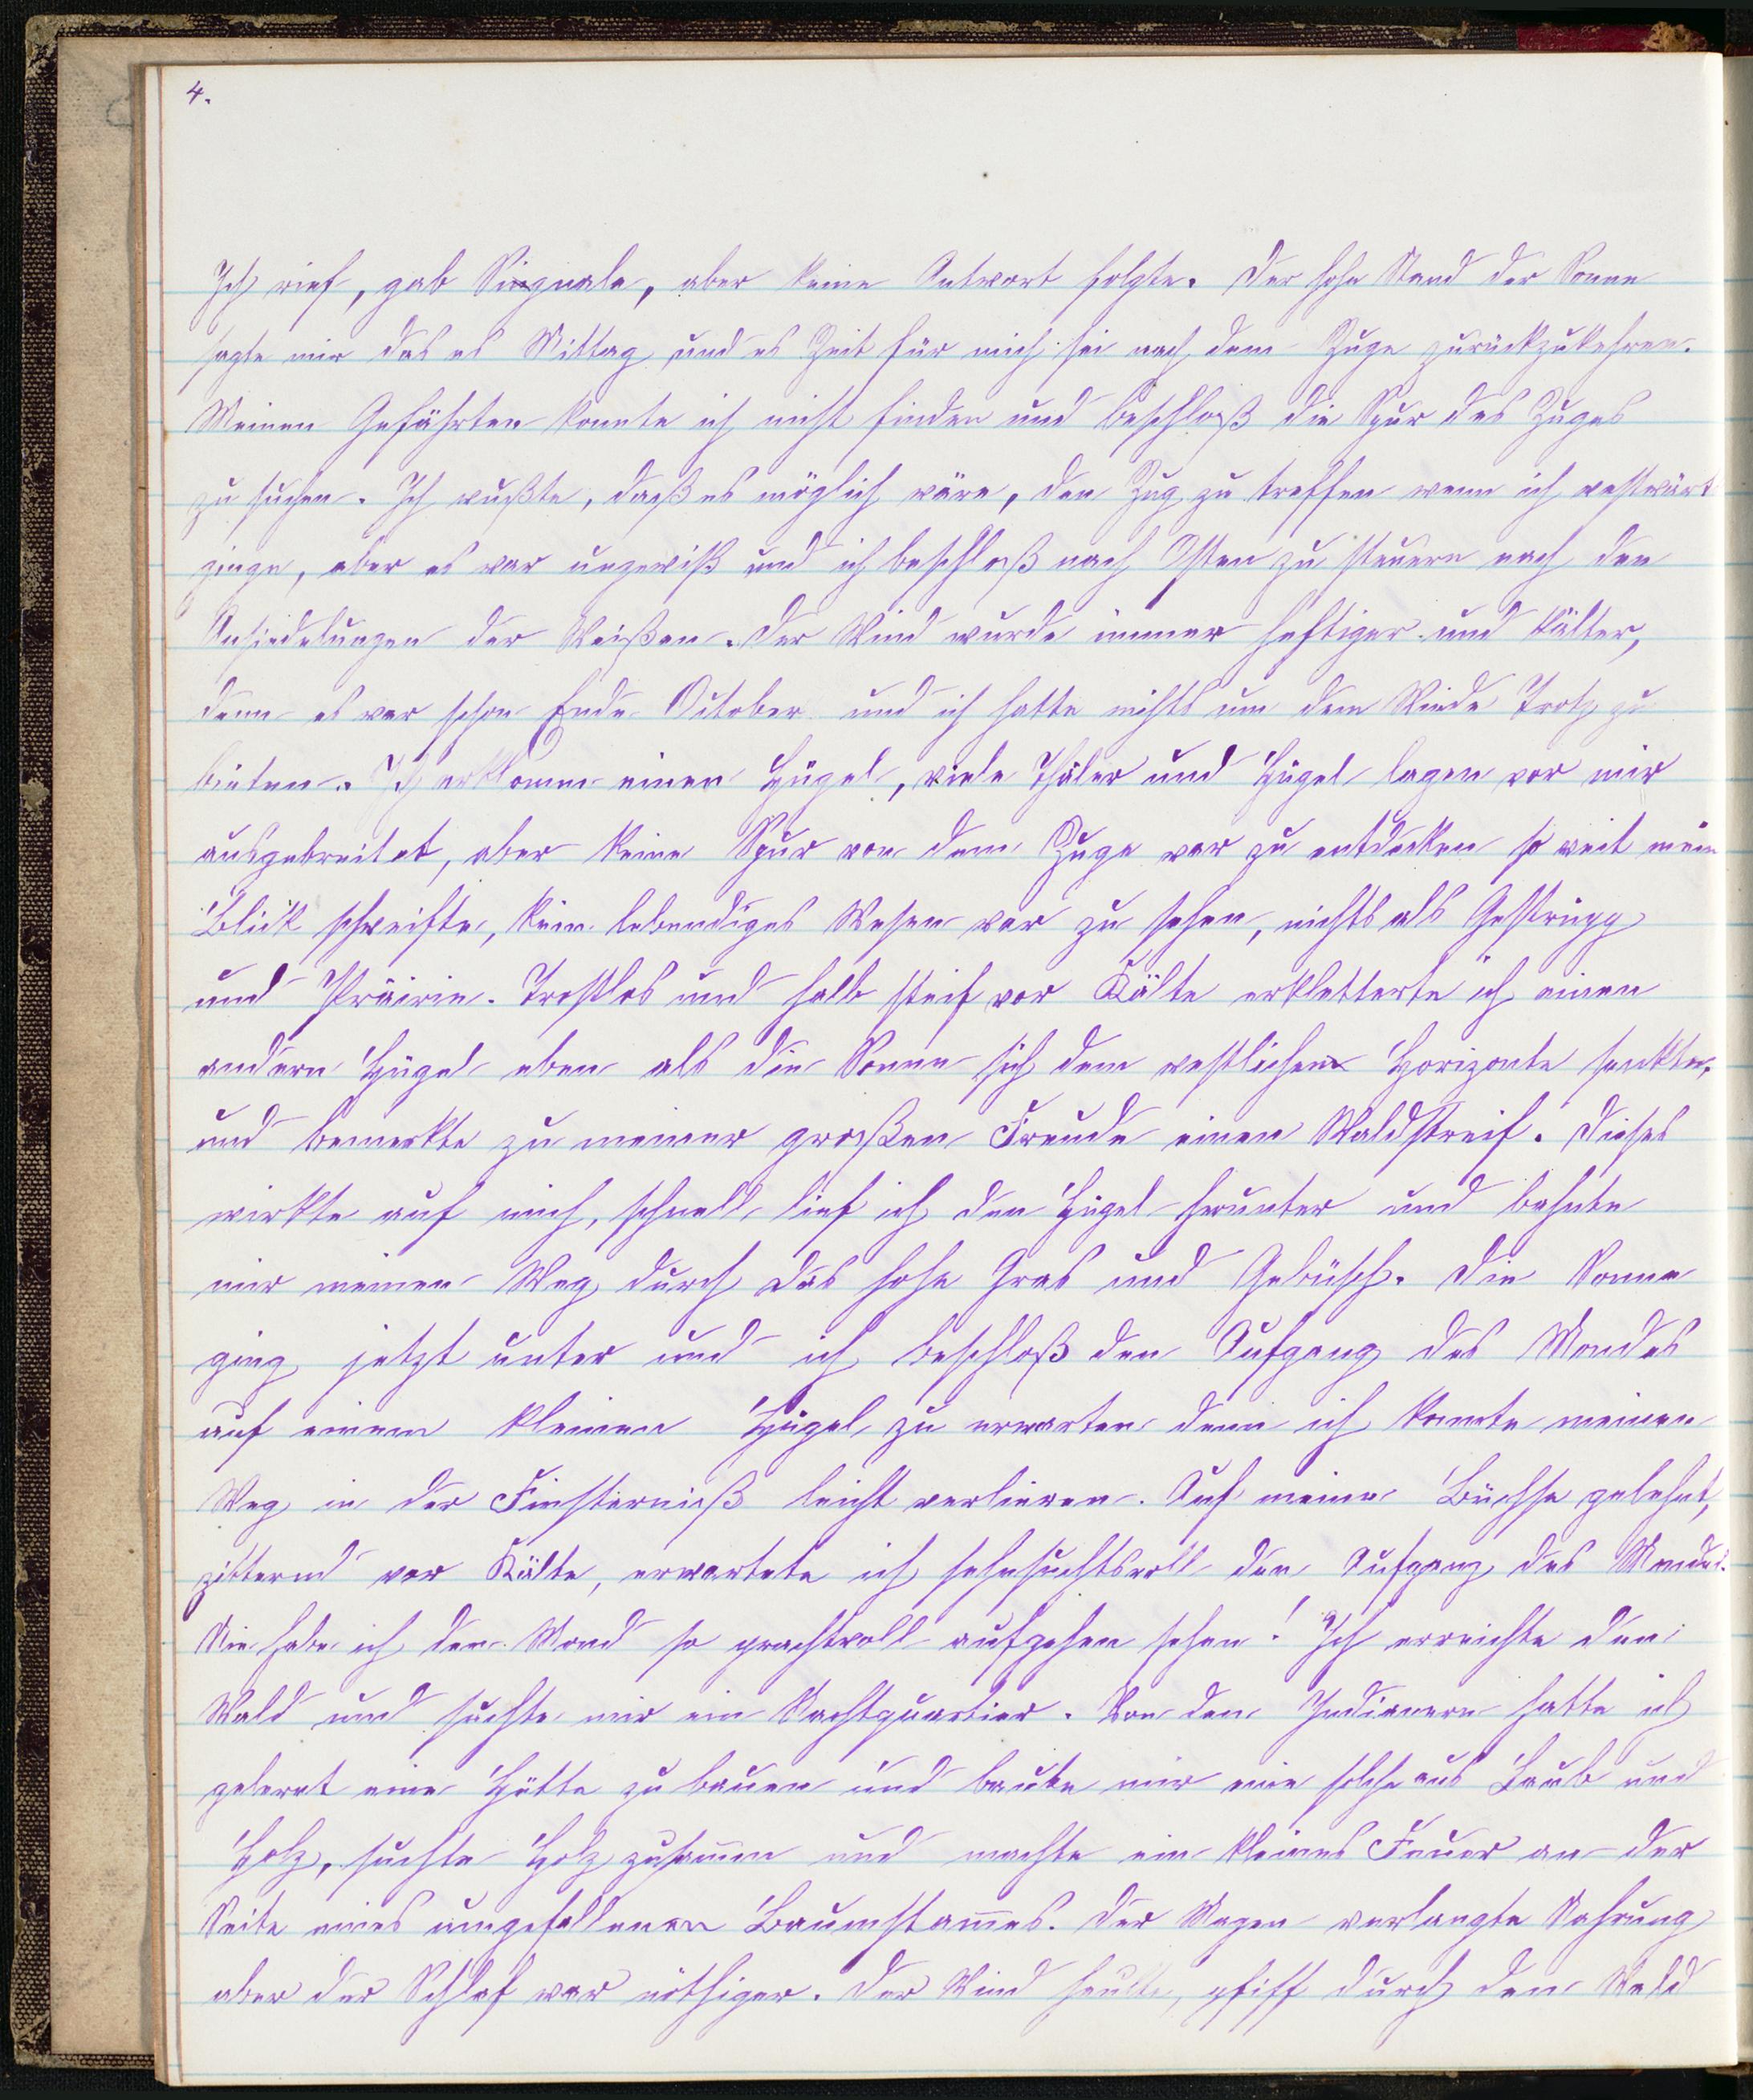 4.
Ich rief, gab Singnale, aber keine Antwort folgte. Der hohe Stand der Sonne
sagte mir das es Mittag und es Zeit für mich sei nach dem Zuge zurückzukehren.
Meinen Gefährten konnte ich nicht finden und beschloß die Spur des Zuges
zu suchen. Ich wußte, daß es möglich wäre, den Zug zu treffen wenn ich westwärt
ginge, aber es war ungewiß und ich beschloß nach Osten zu steuern nach den
Ansiedelungen der Weißen. Der Wind wurde immer heftiger und kälter,
denn es war schon Ende October und ich hatte nichts um dem Winde Trotz zu
bieten. Ich erklomm einen Hügel, viele Thäler und Hügel lagen vor mir
ausgebreitet, aber keine Spur von dem Zuge war zu entdecken so weit mein
Blick schweifte, kein lebendiges Wesen war zu sehen, nichts als Gestrüpp
und Präirie. Trostlos und halb steif vor Kälte erkletterte ich einen
andern Hügel eben als die Sonne sich dem westlichen Horizonte senkte,
und bemerkte zu meiner großen Freude einen Waldstreif. Dieses
wirkte auf mich, schnell lief ich den Hügel herunter und bahnte
mir meinen Weg durch das hohe Gras und Gebüsch. Die Sonne
ging jetzt unter und ich beschloß den Aufgang des Mondes
auf einem kleinen Hügel zu erwarten denn ich konnte meinen
Weg in der Finsterniß leicht verlieren. Auf meine Büchse gelehnt,
zitternd vor Kälte, erwartete ich sehnsuchtsvoll den Aufgang des Mondes.
Nie habe ich den Mond so prachtvoll aufgehen sehen! Ich erreichte den
Wald und suchte mir ein Nachtquartier. Von den Indianern hatte ich
gelernt eine Hütte zu bauen und baute mir eine solche aus Laub und
Holz, suchte Holz zusam̄en und machte ein kleines Feuer an der
Seite eines umgefallenen Baumstam̄es. Der Magen verlangte Nahrung
aber der Schlaf war nöthiger. Der Wind heulte, pfiff durch den Wald